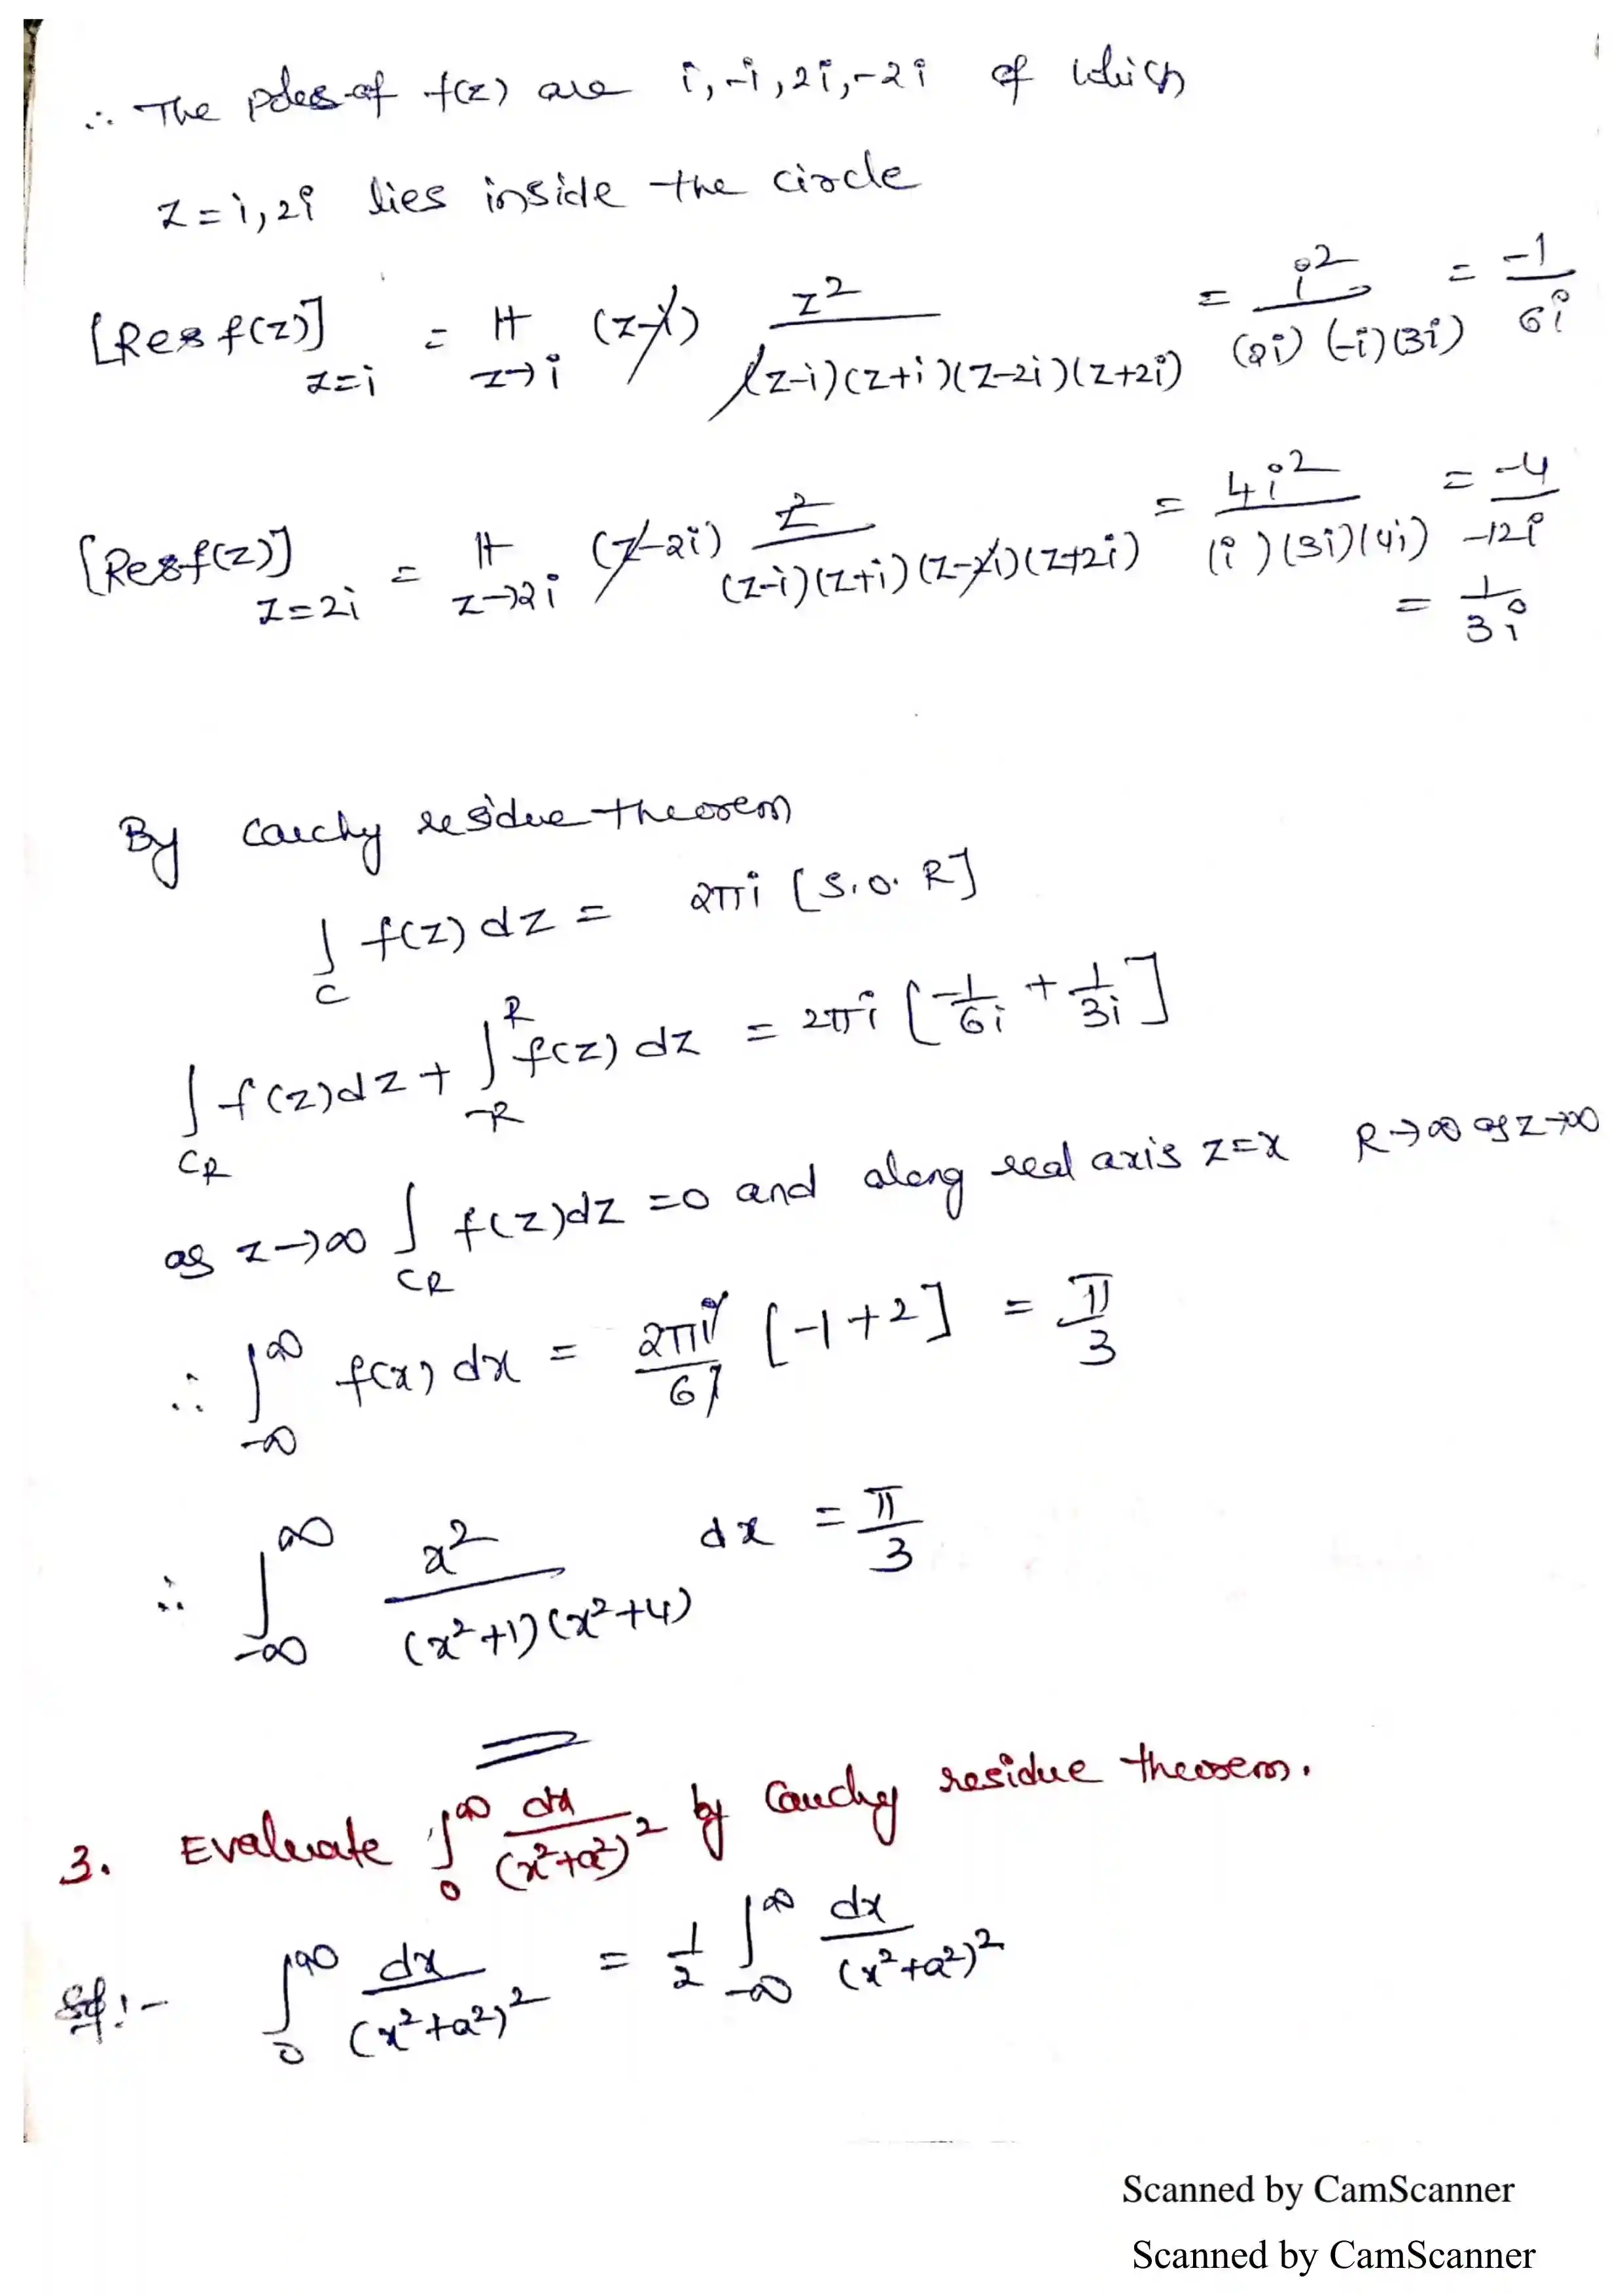 ∴ The poles of f(z) are i, -i, 2i, -2i of which
z = i, 2i lies inside the circle
[Res f(z)]_{z=i} = lt_{z→i} (z-i) z²/((z-i)(z+i)(z-2i)(z+2i)) = i²/((2i)(-i)(3i)) = -1/6i
[Res f(z)]_{z=2i} = lt_{z→2i} (z-2i) z²/((z-i)(z+i)(z-2i)(z+2i)) = 4i²/((i)(3i)(4i)) = -4/-12i
= 1/3i
By Cauchy residue theorem
∫_C f(z) dz = 2πi [S.O.R]
∫_{CR} f(z)dz + ∫_{-R}^{R} f(z) dz = 2πi [-1/6i + 1/3i]
as z→∞ ∫_{CR} f(z)dz = 0 and along real axis z=x R→∞ as z→∞
∴ ∫_{-∞}^{∞} f(x) dx = 2πi/6i [-1+2] = π/3
∴ ∫_{-∞}^{∞} x²/((x²+1)(x²+4)) dx = π/3
3. Evaluate ∫_0^∞ dx/(x²+a²)² by Cauchy residue theorem.
Sol:- ∫_0^∞ dx/(x²+a²)² = 1/2 ∫_{-∞}^{∞} dx/(x²+a²)²
Scanned by CamScanner
Scanned by CamScanner